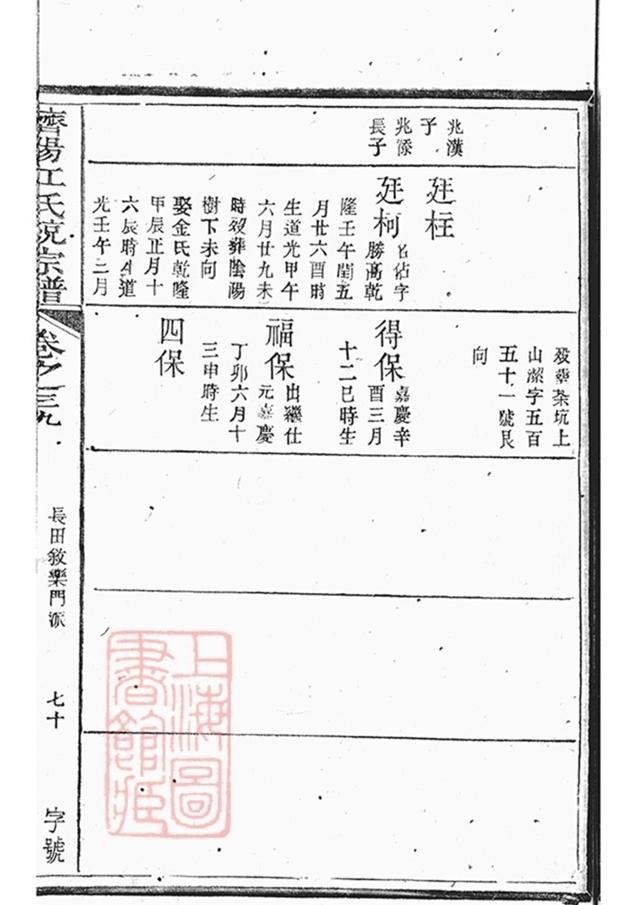 兆漢
子
兆滌
長子
廷柱
廷柯
名佔字
勝高乾
隆壬午閏五
月廿六酉時
生道光甲午
六月廿九未
時歿葬陰陽
樹下未向
娶金氏乾隆
甲辰正月十
六辰時生道
光壬午二月
歿葬茶坑上
山潔字五百
五十一號艮
向
得保
嘉慶辛
酉三月
十二巳時生
福保
出繼仕
元嘉慶
丁卯六月十
三申時生
四保
濟陽江氏統宗譜
卷之三九
長田敘樂門派
七十
字號
上海圖
書館藏